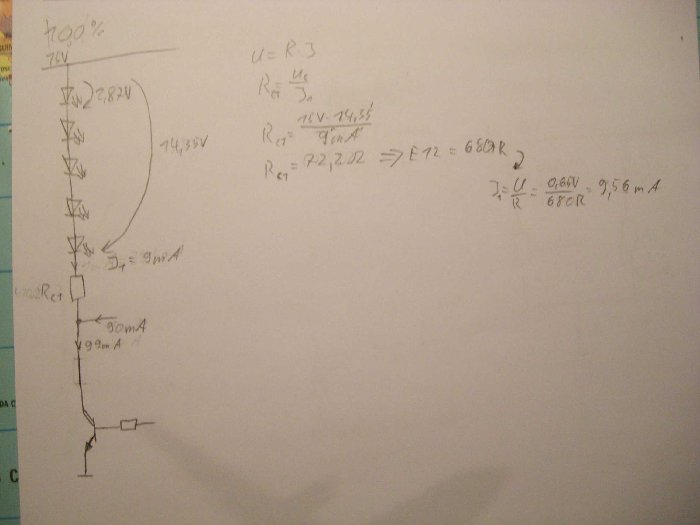 100%
15V
2,87V
14,35V
I₁ = 9mA
R_C1
90mA
99mA
U = R·I
R_C1 = U₁/I₁
R_C1 = 15V - 14,35/9mA
R_C1 = 72,2Ω => E12 = 680R
I₁ = U/R = 0,65V/680R = 9,56mA